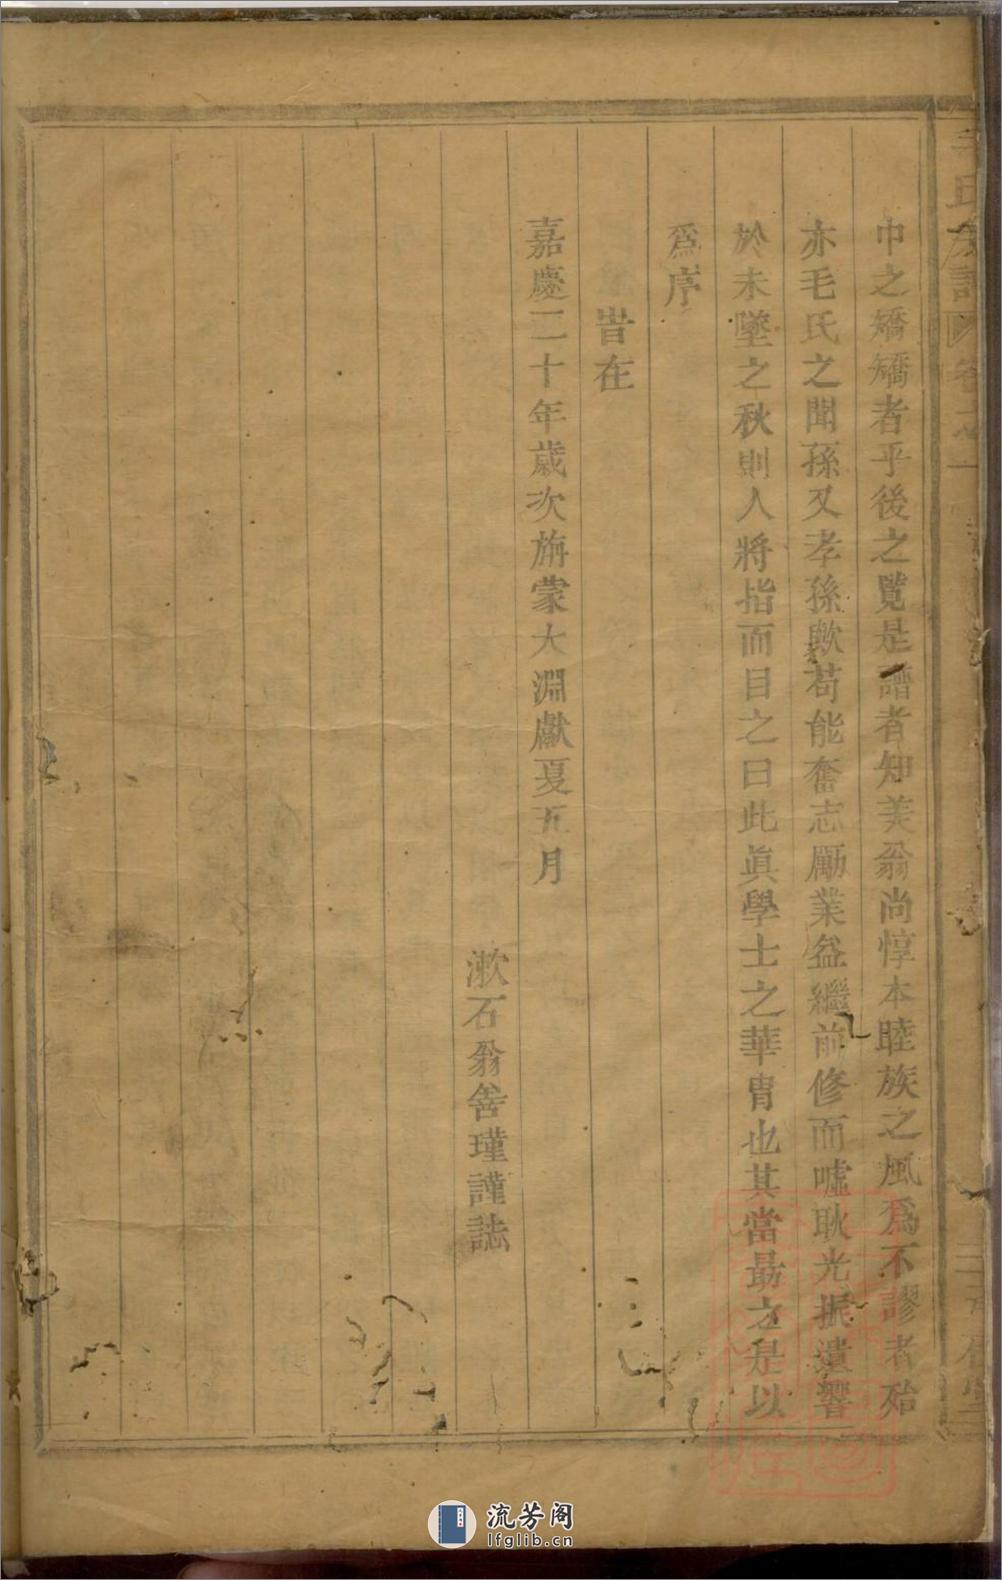 中之矯矯者乎後之覽是譜者知美翁尚惇本睦族之風爲不謬者殆
亦毛氏之聞孫又孝孫歟苟能奮志勵業益繼前修而噓耿光振遺響
於未墜之秋則人將指而目之曰此眞學士之華胄也其當勗之是以
爲序
旹在
嘉慶二十年歲次旃蒙大淵獻夏五月
漱石翁舍瑾謹誌
氏 卷之一
流芳阁
lfglib.cn